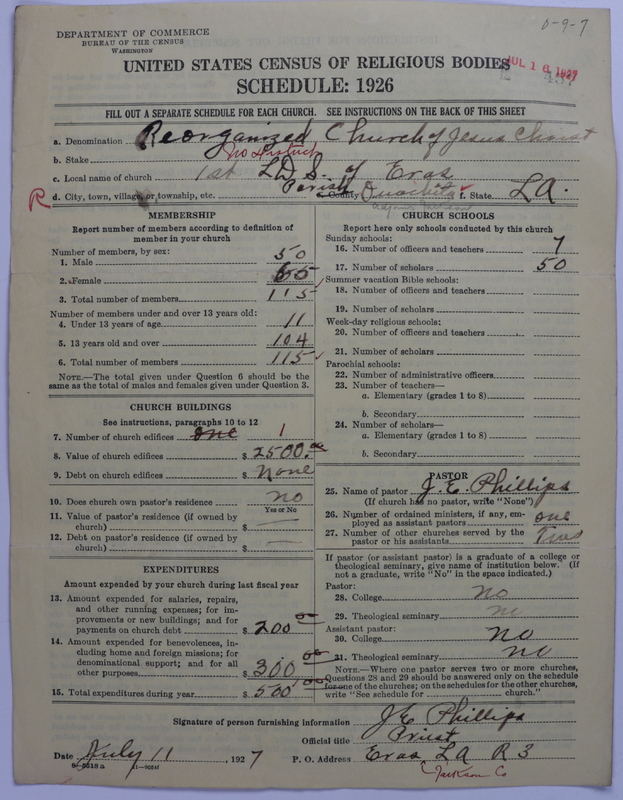 0-9-7
DEPARTMENT OF COMMERCE
BUREAU OF THE CENSUS
WASHINGTON
JUL 16 1927
UNITED STATES CENSUS OF RELIGIOUS BODIES
SCHEDULE: 1926
FILL OUT A SEPARATE SCHEDULE FOR EACH CHURCH. SEE INSTRUCTIONS ON THE BACK OF THIS SHEET
a. Denomination Reorganized Church of Jesus Christ
b. Stake No District
c. Local name of church 1st L.D.S. of Eros
R d. City, town, village, or township, etc. Parish County Ouachita f. State LA.
MEMBERSHIP
Report number of members according to definition of member in your church
Number of members, by sex:
1. Male 50
2. Female 65
3. Total number of members 115
Number of members under and over 13 years old:
4. Under 13 years of age 11
5. 13 years old and over 104
6. Total number of members 115
NOTE.—The total given under Question 6 should be the same as the total of males and females given under Question 3.
CHURCH BUILDINGS
See instructions, paragraphs 10 to 12
7. Number of church edifices one 1
8. Value of church edifices $ 2500.00
9. Debt on church edifices $ None
10. Does church own pastor's residence no
Yes or No
11. Value of pastor's residence (if owned by church) $
12. Debt on pastor's residence (if owned by church) $
EXPENDITURES
Amount expended by your church during last fiscal year
13. Amount expended for salaries, repairs, and other running expenses; for improvements or new buildings; and for payments on church debt $ 200 00
14. Amount expended for benevolences, including home and foreign missions; for denominational support; and for all other purposes $ 300 00
15. Total expenditures during year $ 500 00
CHURCH SCHOOLS
Report here only schools conducted by this church
Sunday schools:
16. Number of officers and teachers 7
17. Number of scholars 50
Summer vacation Bible schools:
18. Number of officers and teachers
19. Number of scholars
Week-day religious schools:
20. Number of officers and teachers
21. Number of scholars
Parochial schools:
22. Number of administrative officers
23. Number of teachers—
a. Elementary (grades 1 to 8)
b. Secondary
24. Number of scholars—
a. Elementary (grades 1 to 8)
b. Secondary
PASTOR
25. Name of pastor J. E. Phillips
(If church has no pastor, write "None")
26. Number of ordained ministers, if any, employed as assistant pastors one
27. Number of other churches served by the pastor or his assistants Two
If pastor (or assistant pastor) is a graduate of a college or theological seminary, give name of institution below. (If not a graduate, write "No" in the space indicated.)
Pastor:
28. College no
29. Theological seminary no
Assistant pastor:
30. College no
31. Theological seminary no
NOTE.—Where one pastor serves two or more churches, Questions 28 and 29 should be answered only on the schedule for one of the churches; on the schedules for the other churches, write "See schedule for church."
Signature of person furnishing information J. E. Phillips
Official title Priest
Date July 11, 1927 P. O. Address Eros LA R 3
Jackson Co